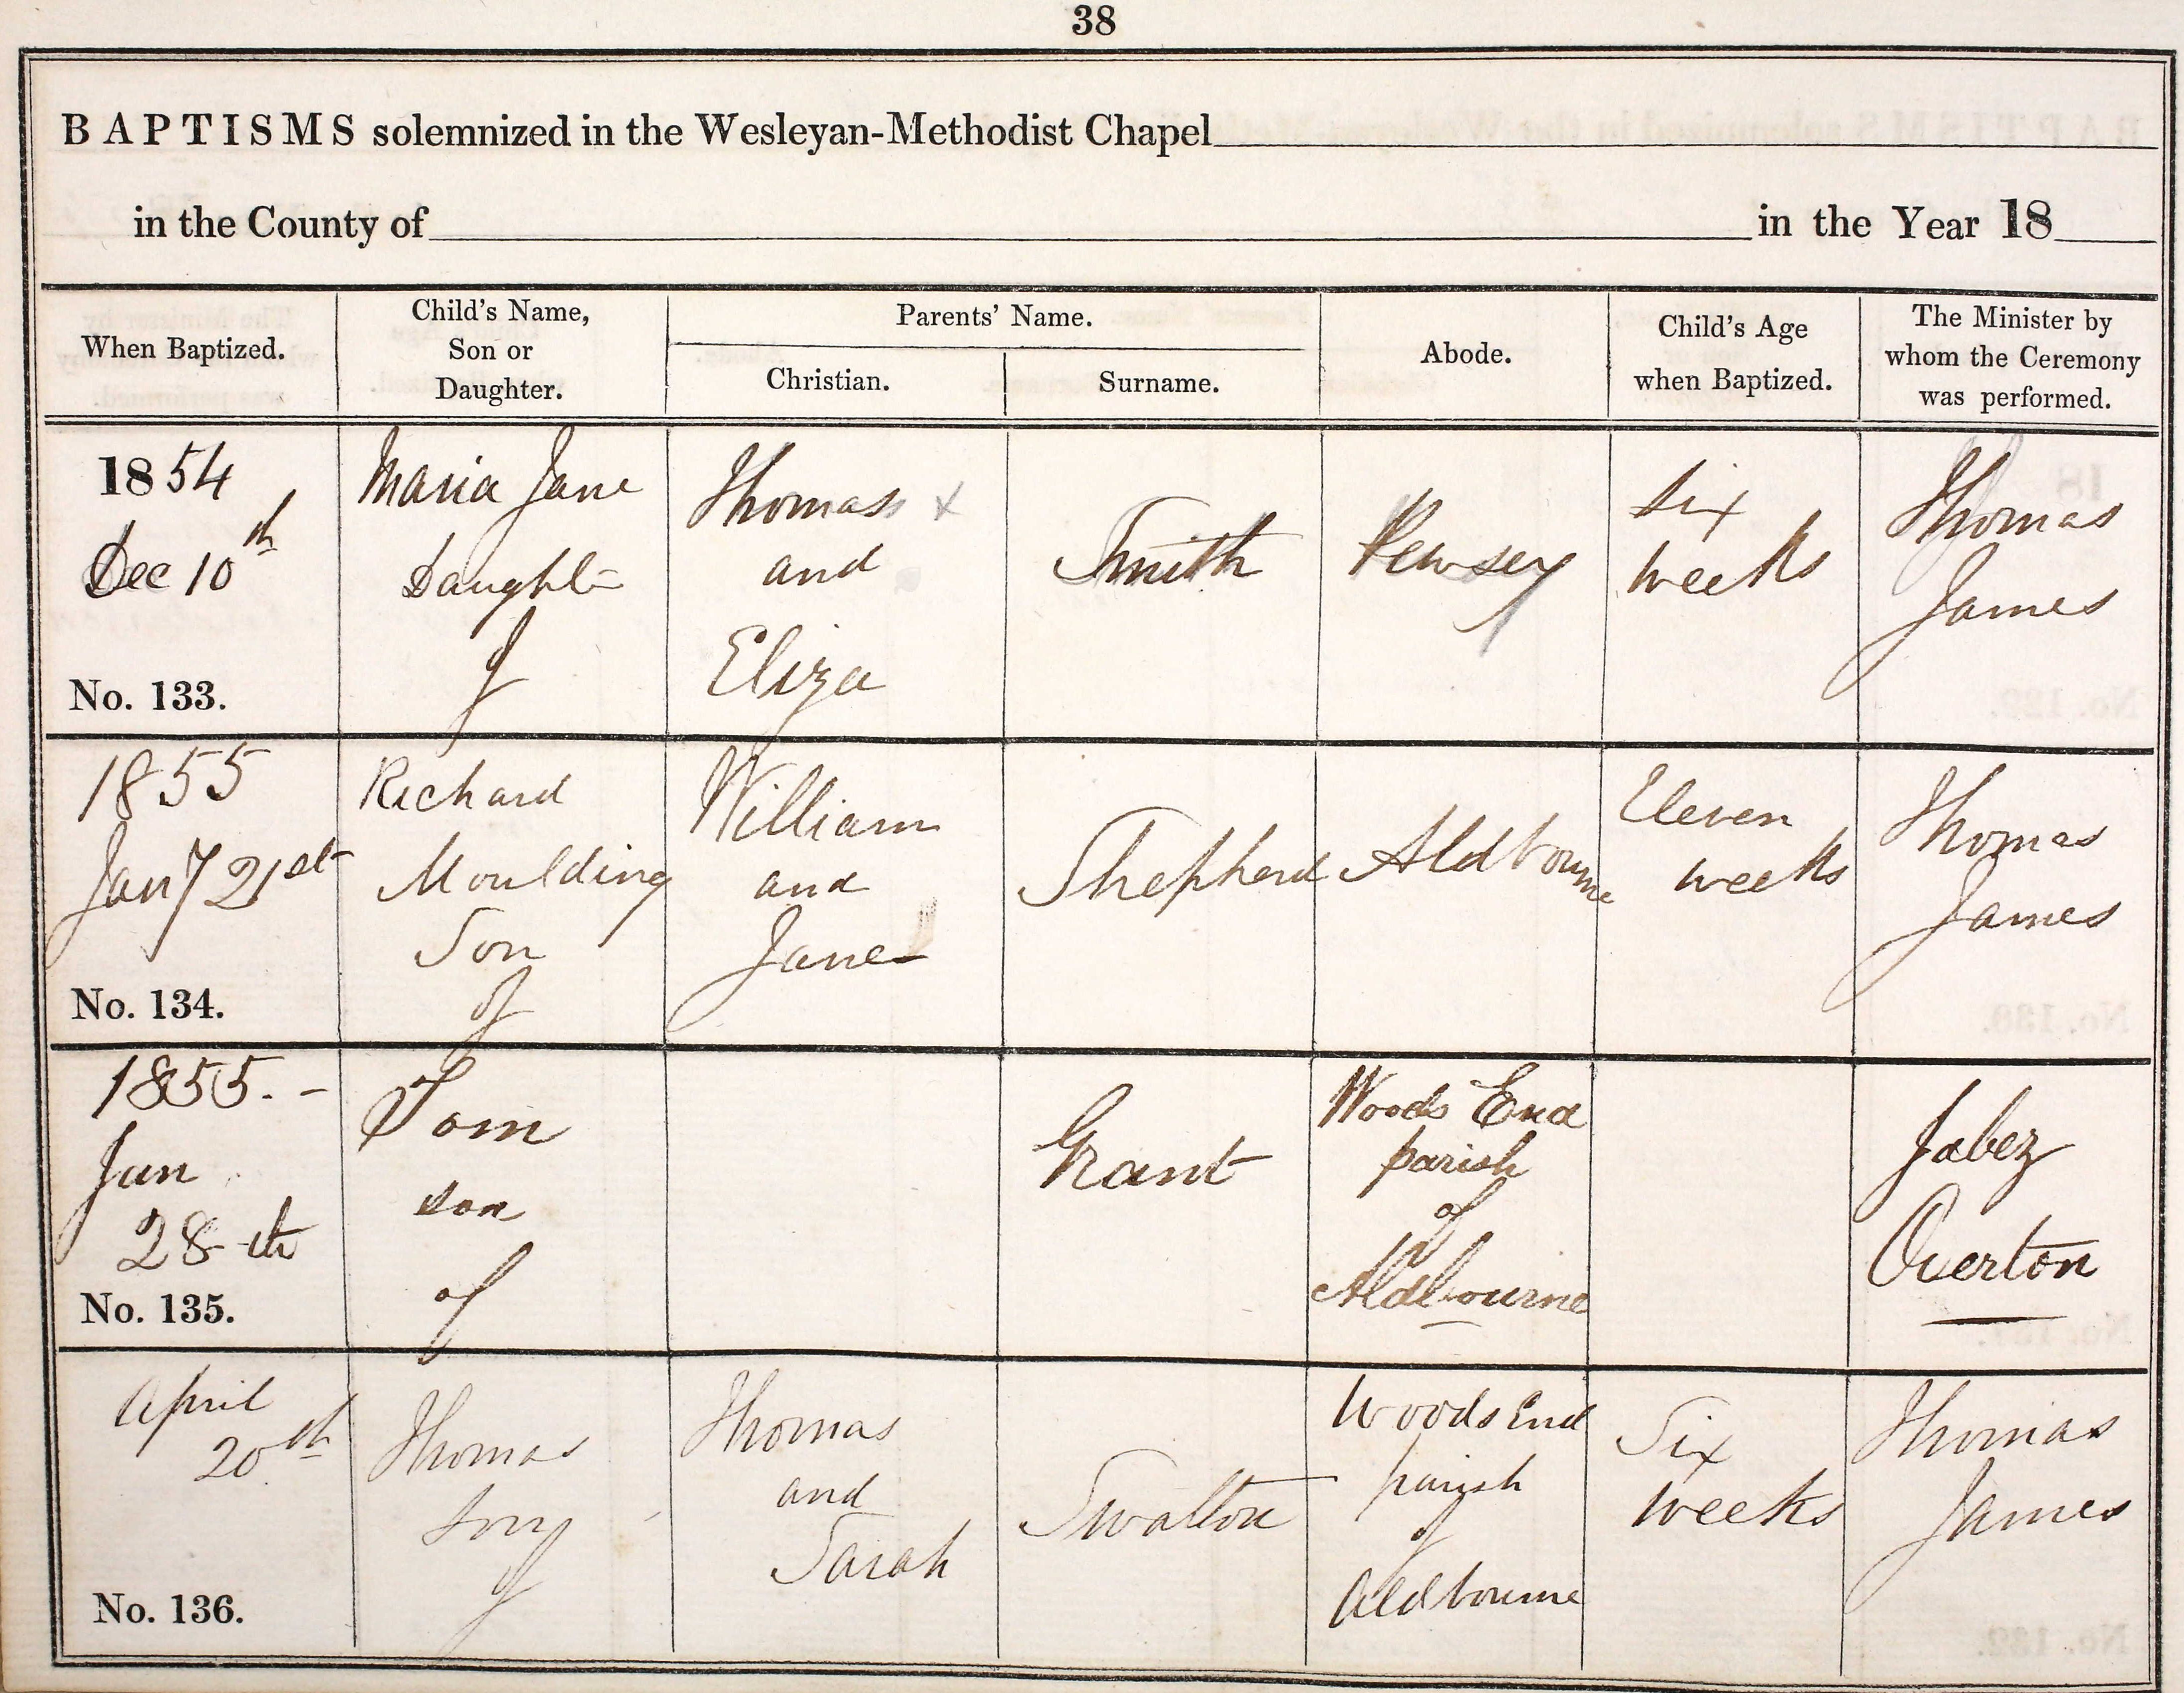 38
BAPTISMS solemnized in the Wesleyan-Methodist Chapel
in the County of in the Year 18
When Baptized.
Child's Name,
Son or
Daughter.
Parents' Name.
Christian.
Surname.
Abode.
Child's Age
when Baptized.
The Minister by
whom the Ceremony
was performed.
1854
Dec 10th
No. 133.
Maria Jane
Daughter
of
Thomas x
and
Eliza
Smith
Pewsey
Six
weeks
Thomas
James
1855
Jany 21st
No. 134.
Richard
Moulding
Son
of
William
and
Jane
Shepherd
Aldbourne
Eleven
weeks
Thomas
James
1855. -
Jan
28th
No. 135.
Tom
son
of
Grant
Woods End
parish
of
Aldbourne
Jabez
Overton
April
20th
No. 136.
Thomas
Son
of
Thomas
and
Sarah
Swatton
Woods End
parish
of
Aldbourne
Six
weeks
Thomas
James